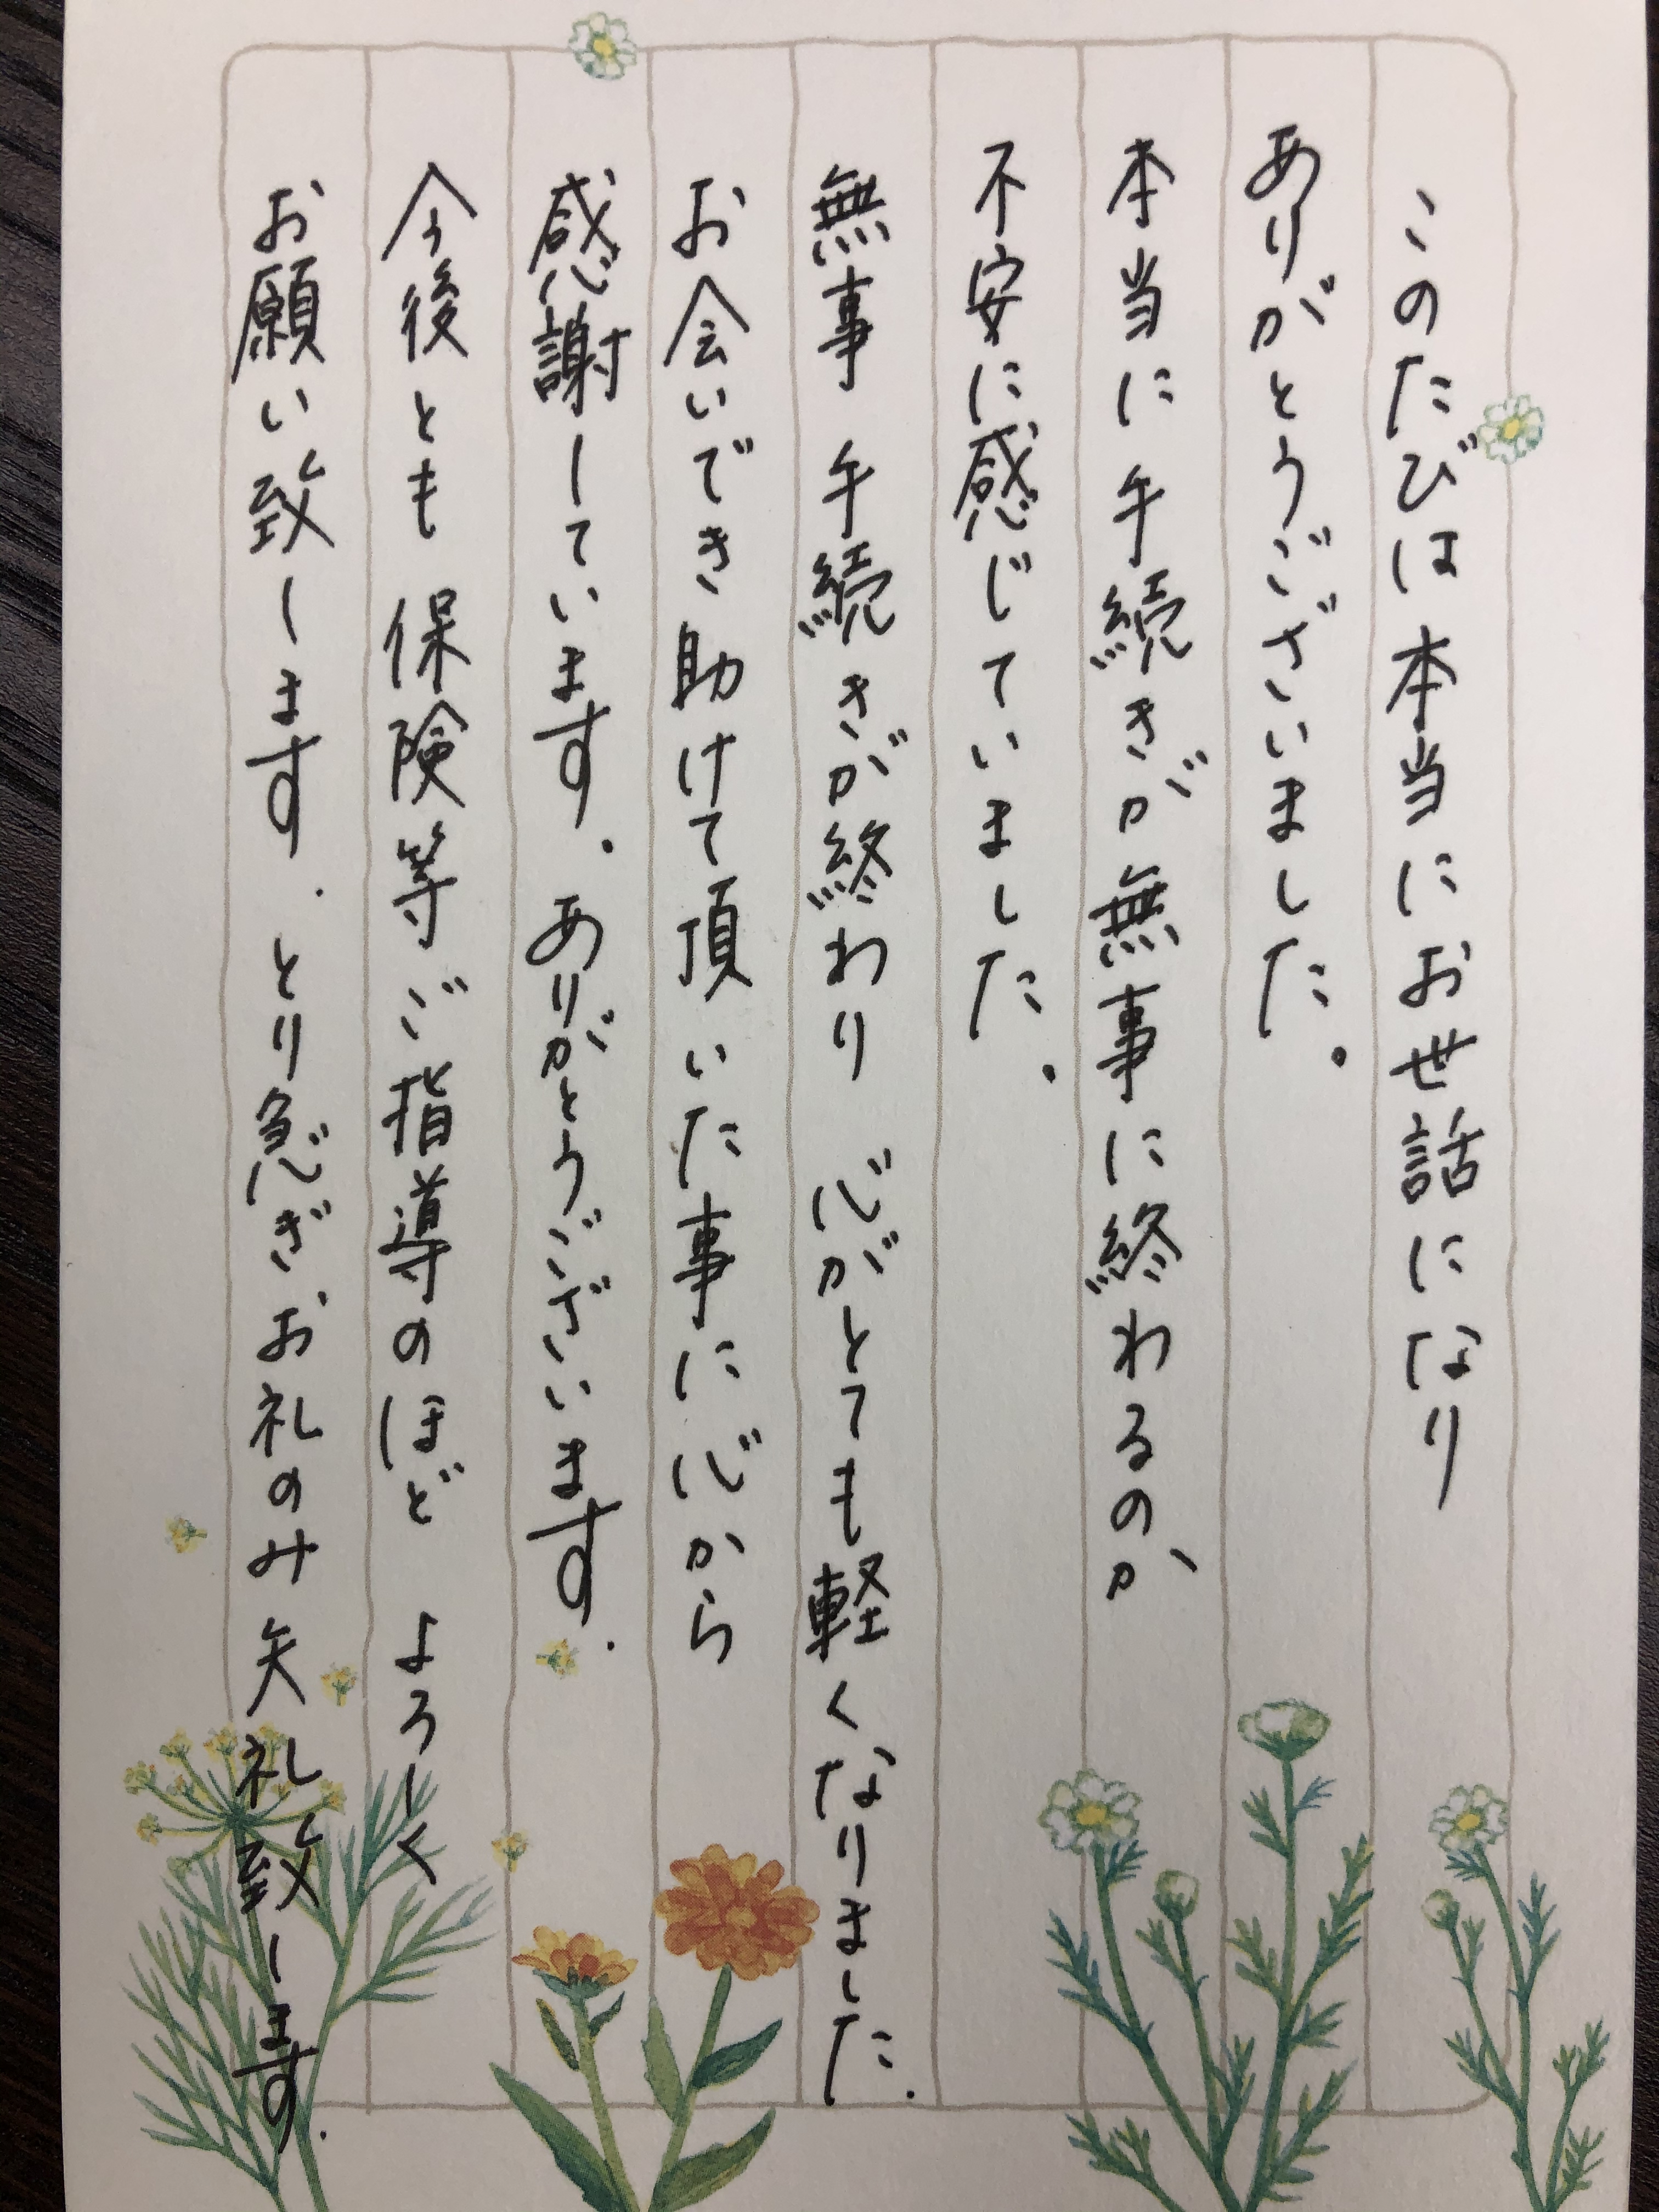 このたびは本当にお世話になり
ありがとうございました。
本当に手続きが無事に終わるのか、
不安に感じていました。
無事手続きが終わり 心がとても軽くなりました。
お会いでき助けて頂いた事に心から
感謝しています。ありがとうございます。
今後とも保険等ご指導のほど よろしく
お願い致します。とり急ぎお礼のみ失礼致します。